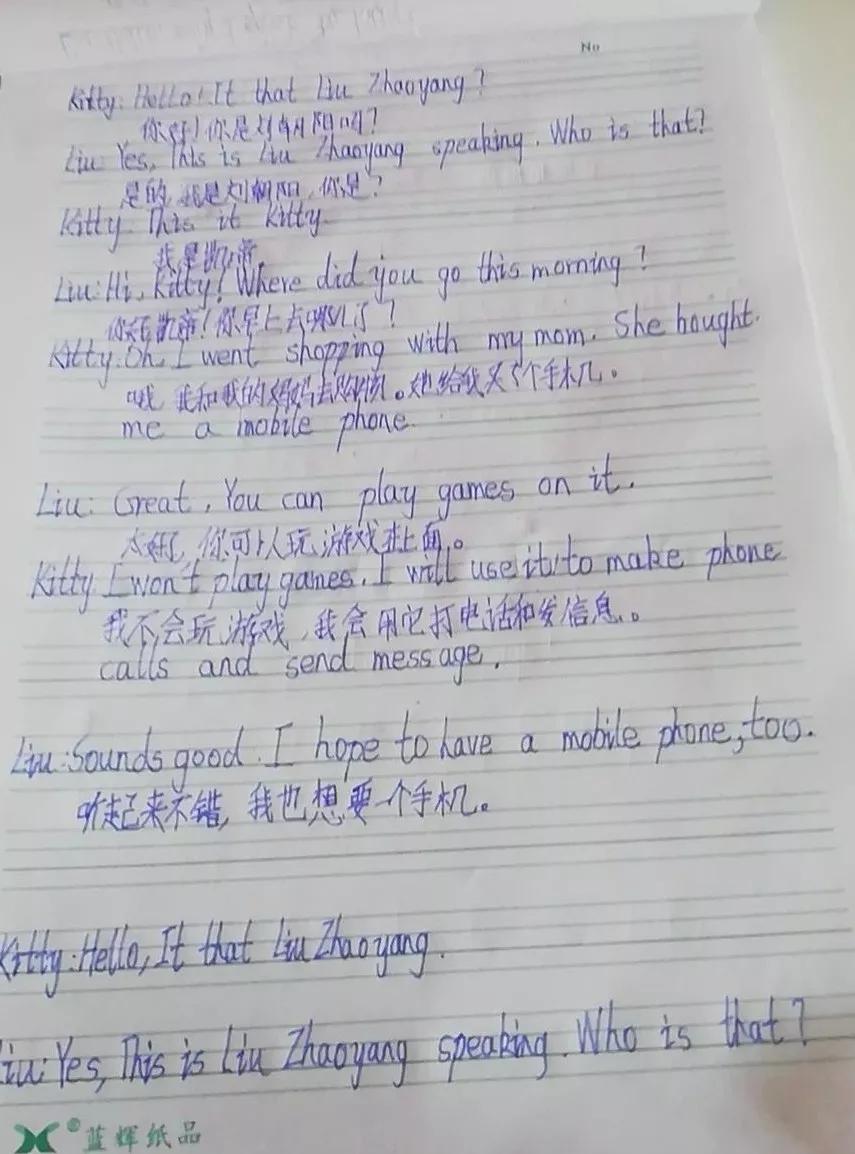 No
Kitty: Hello! It that Liu Zhaoyang?
你好!你是刘朝阳吗?
Liu: Yes, This is Liu Zhaoyang speaking. Who is that?
是的,我是刘朝阳,你是?
Kitty: This it Kitty.
我是凯蒂。
Liu: Hi, Kitty! Where did you go this morning?
你好凯蒂!你早上去哪儿了?
Kitty: Oh, I went shopping with my mom. She bought.
哦,我和我的妈妈去购物。她给我买了个手机。
me a mobile phone.
Liu: Great, You can play games on it.
太好了,你可以玩游戏在上面。
Kitty I won't play games. I will use it to make phone
我不会玩游戏,我会用它打电话和发信息。
calls and send message.
Liu: Sounds good. I hope to have a mobile phone, too.
听起来不错,我也想要一个手机。
Kitty: Hello, It that Liu Zhaoyang.
Liu: Yes, This is Liu Zhaoyang speaking. Who is that?
蓝辉纸品